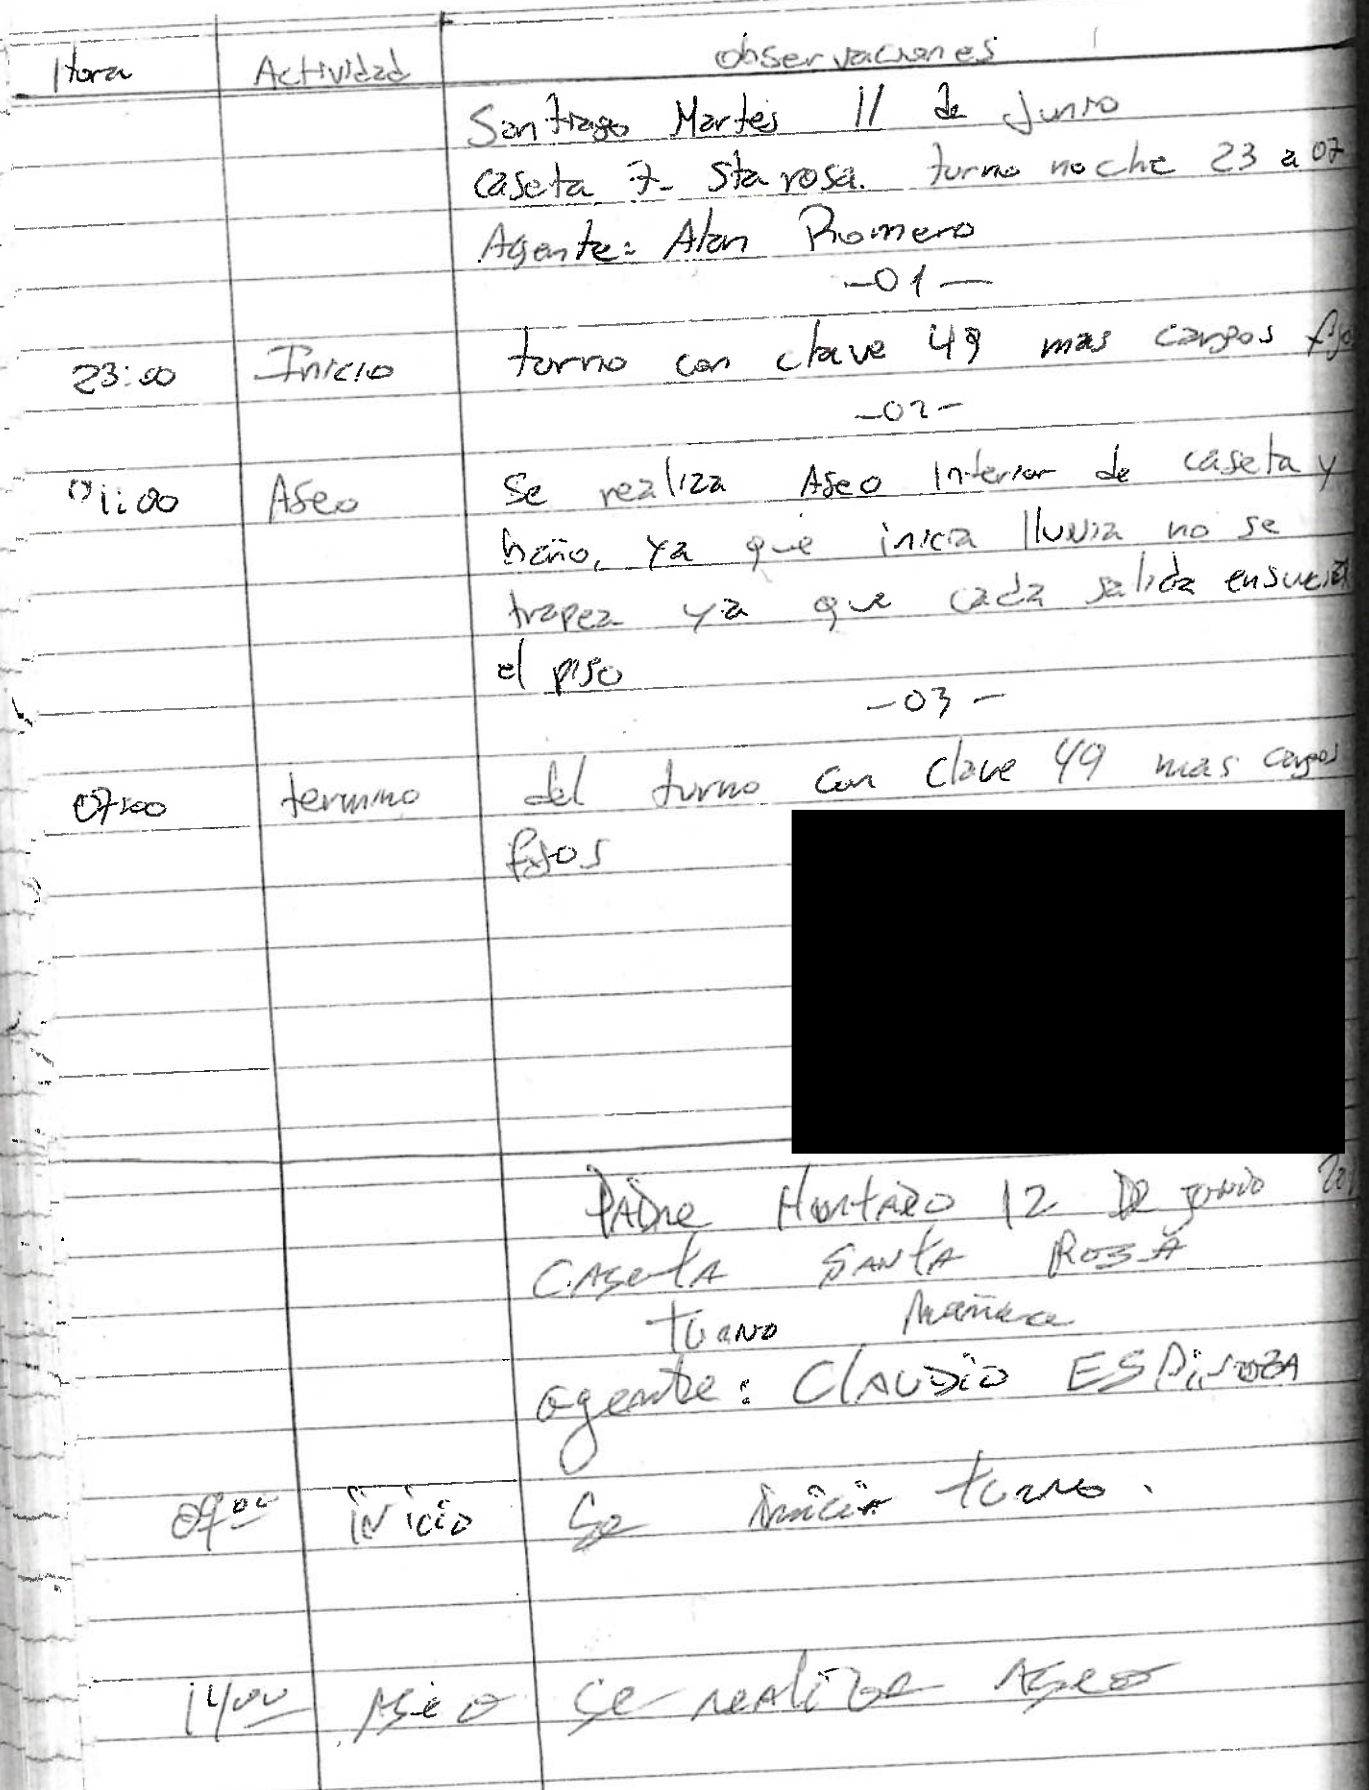 Hora Actividad Observaciones
Santiago Martes 11 de Junio
caseta 7- Sta rosa. turno noche 23 a 07
Agente: Alan Romero
-01-
23:00 Inicio turno con clave 49 mas cargos
-02-
01:00 Aseo Se realiza Aseo Interior de caseta y
baño, ya que inicia lluvia no se
trapea ya que cada salida ensucia
el piso
-03-
07:00 termino del turno con clave 49 mas cargos
fijos
PADRE HURTADO 12 DE JUNIO
CASETA SANTA ROSA
TURNO Mañana
agente: CLAUDIO ESPINOZA
07:00 inicio Se inicia turno.
14:00 ASEO Se realiza ASEO